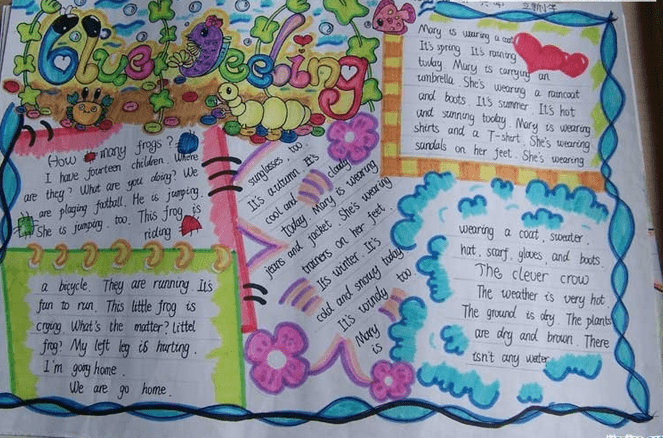 Blue Feeling
How many frogs?
I have fourteen children. Where
are they? What are you doing? We
are playing football. He is jumping.
She is jumping, too. This frog is
riding
a bicycle. They are running. It's
fun to run. This little frog is
crying. What's the matter? Littel
frog? My left leg is hurting.
I'm gong home.
We are go home.
Mary is wearing a coat.
It's spring. It's raining
today. Mary is carrying an
umbrella. She's wearing a raincoat
and boots. It's summer. It's hot
and sunning today. Mary is wearing
shirts and a T-shirt. She's wearing
sandals on her feet. She's wearing
sunglasses, too.
It's autumn. It's
cool and cloudy
today. Mary is wearing
jeans and jacket. She's wearing
trainers on her feet.
It's winter. It's
cold and snowy today
It's windy too
Mary
is
wearing a coat, sweater.
hat, scarf, gloves, and boots.
The clever crow
The weather is very hot
The ground is dry. The plants
are dry and brown. There
isn't any water